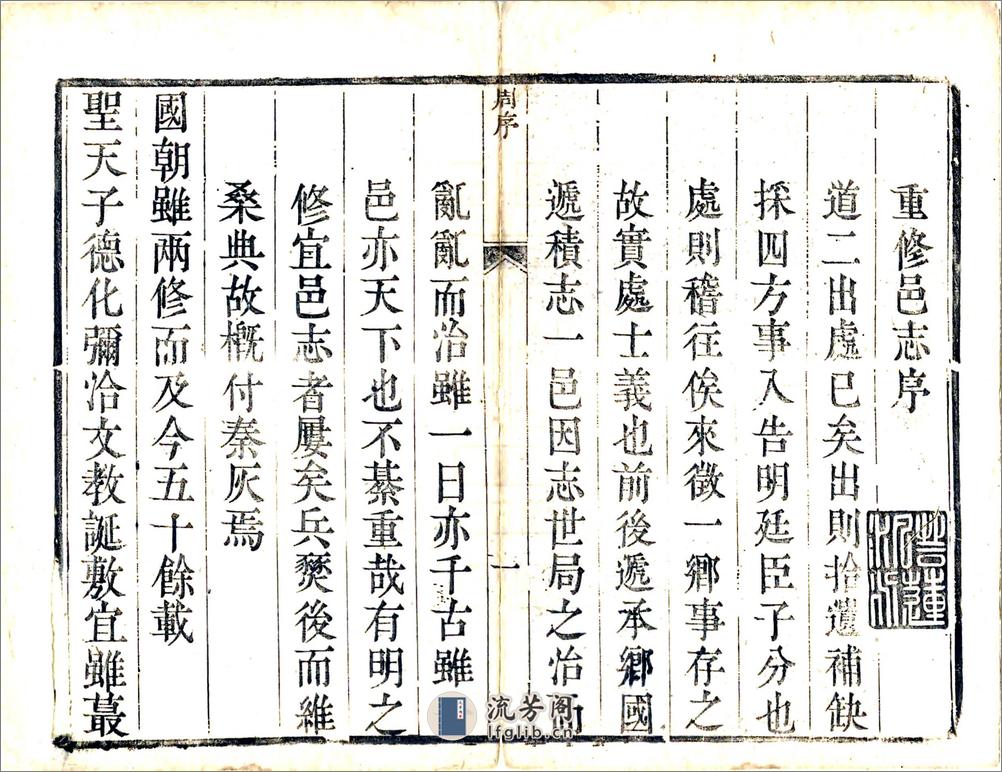 重修邑志序
道二出處已矣出則拾遺補缺
採四方事入告明廷臣子分也
處則稽往俟來徵一鄉事存之
故實處士義也前後遞承鄉國
遞積志一邑因志世局之治而
周序
一
亂亂而治雖一日亦千古雖一
邑亦天下也不綦重哉有明之
修宜邑志者屢矣兵燹後而維
桑典故概付秦灰焉
國朝雖兩修而及今五十餘載
聖天子德化彌洽文教誕敷宜雖蕞
流芳阁
lfglib.cn